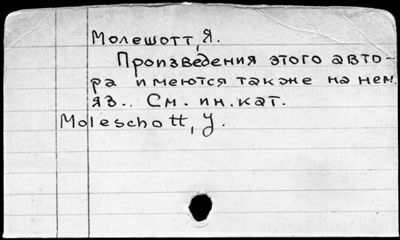 Молешотт, Я.
Произведения этого авто-
ра имеются также на нем.
яз.. См. ин. кат.
Moleschott, J.